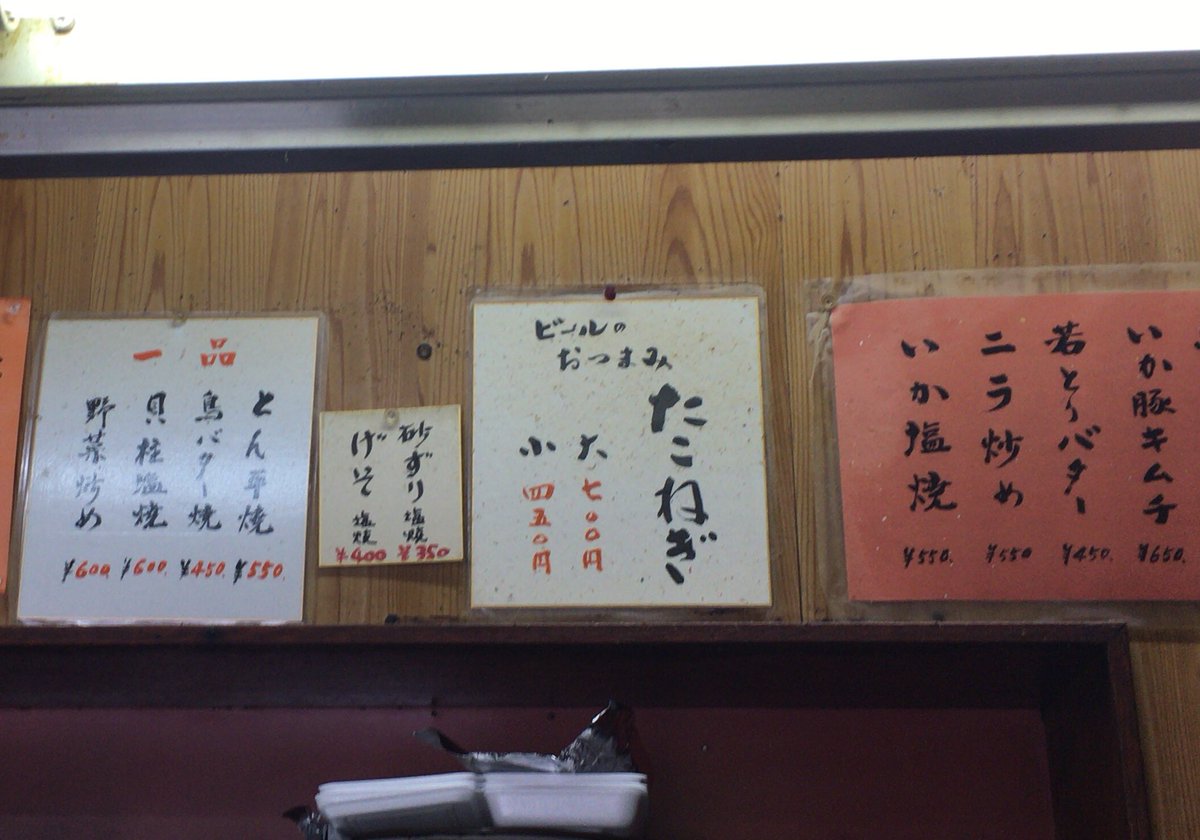 一品
とん平焼 ¥550.
鳥バター焼 ¥450.
貝柱塩焼 ¥600.
野菜炒め ¥600.
砂ずり塩焼 ¥350
げそ塩焼 ¥400
ビールの
おつまみ
たこねぎ
大 七00円
小 四五0円
いか豚キムチ ¥650.
若とりバター ¥450.
ニラ炒め ¥550
いか塩焼 ¥550.